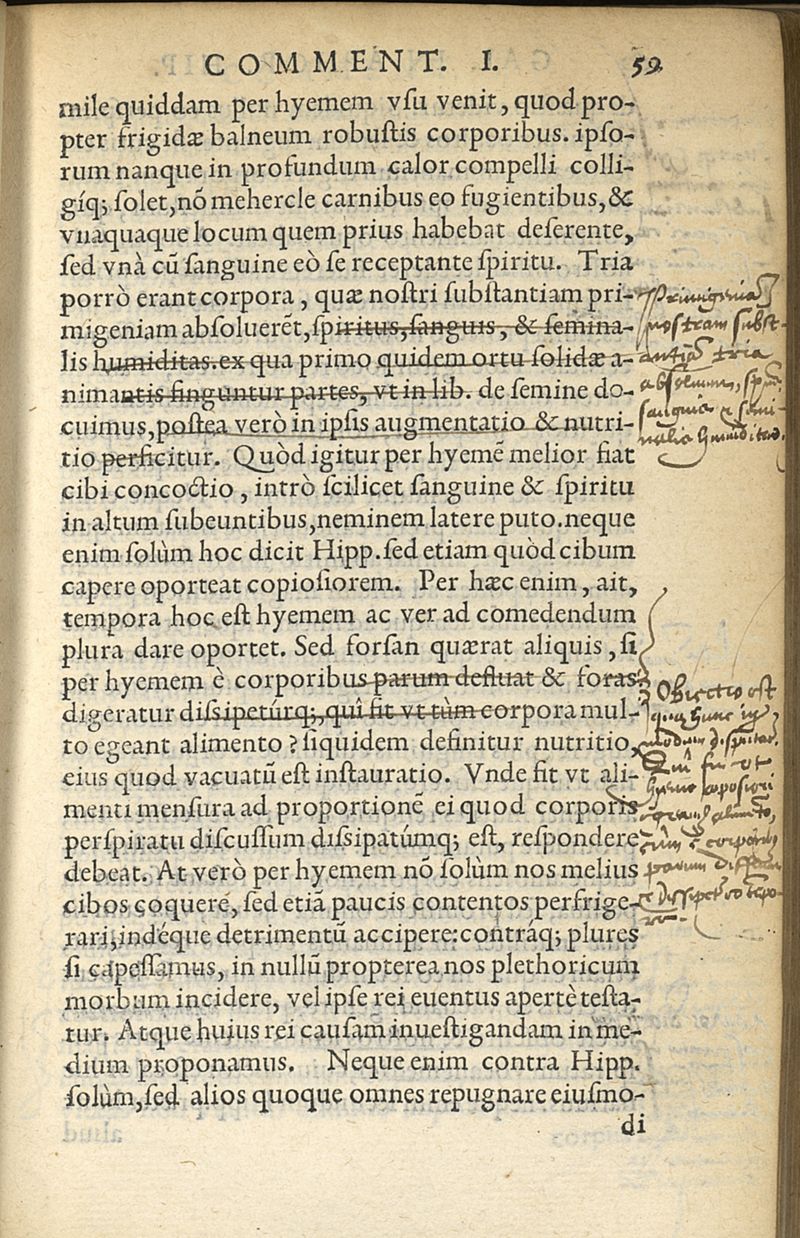 COMMENT. I. 59
mile quiddam per hyemem vſu venit, quod pro-
pter frigidæ balneum robuſtis corporibus. ipſo-
rum nanque in profundum calor compelli colli-
gíq; ſolet, nõ mehercle carnibus eo fugientibus, &
vnaquaque locum quem prius habebat deſerente,
ſed vnà cũ ſanguine eò ſe receptante ſpiritu. Tria
porrò erant corpora, quæ noſtri ſubſtantiam pri-
migeniam abſoluerẽt, ſpiritus, ſanguis, & ſemina-
lis humiditas. ex qua primo quidem ortu ſolidæ a-
nimantis finguntur partes, vt in lib. de ſemine do-
cuimus, poſtea verò in ipſis augmentatio & nutri-
tio perficitur. Quòd igitur per hyemẽ melior fiat
cibi concoctio, intrò ſcilicet ſanguine & ſpiritu
in altum ſubeuntibus, neminem latere puto. neque
enim ſolùm hoc dicit Hipp. ſed etiam quòd cibum
capere oporteat copioſiorem. Per hæc enim, ait,
tempora hoc eſt hyemem ac ver ad comedendum
plura dare oportet. Sed forſan quærat aliquis, ſi
per hyemem è corporibus parum defluat & foras
digeratur diſsipetúrq;, quî fit vt tùm corpora mul-
to egeant alimento? ſiquidem definitur nutritio,
eius quod vacuatũ eſt inſtauratio. Vnde fit vt ali-
menti menſura ad proportionẽ ei quod corporis
perſpiratu diſcuſſum diſsipatúmq; eſt, reſpondere
debeat. At verò per hyemem nõ ſolùm nos melius
cibos coquerẽ, ſed etiã paucis contentos perfrige-
rari, indéque detrimentũ accipere: contráq; plures
ſi capeſſamus, in nullũ propterea nos plethoricum
morbum incidere, vel ipſe rei euentus apertè teſta-
tur. Atque huius rei cauſam inueſtigandam in me-
dium proponamus. Neque enim contra Hipp.
ſolùm, ſed alios quoque omnes repugnare eiuſmo-
di
Primigeniã
noſtram ſubſt-
antiã tria
ſanguis
Obiectio eſt